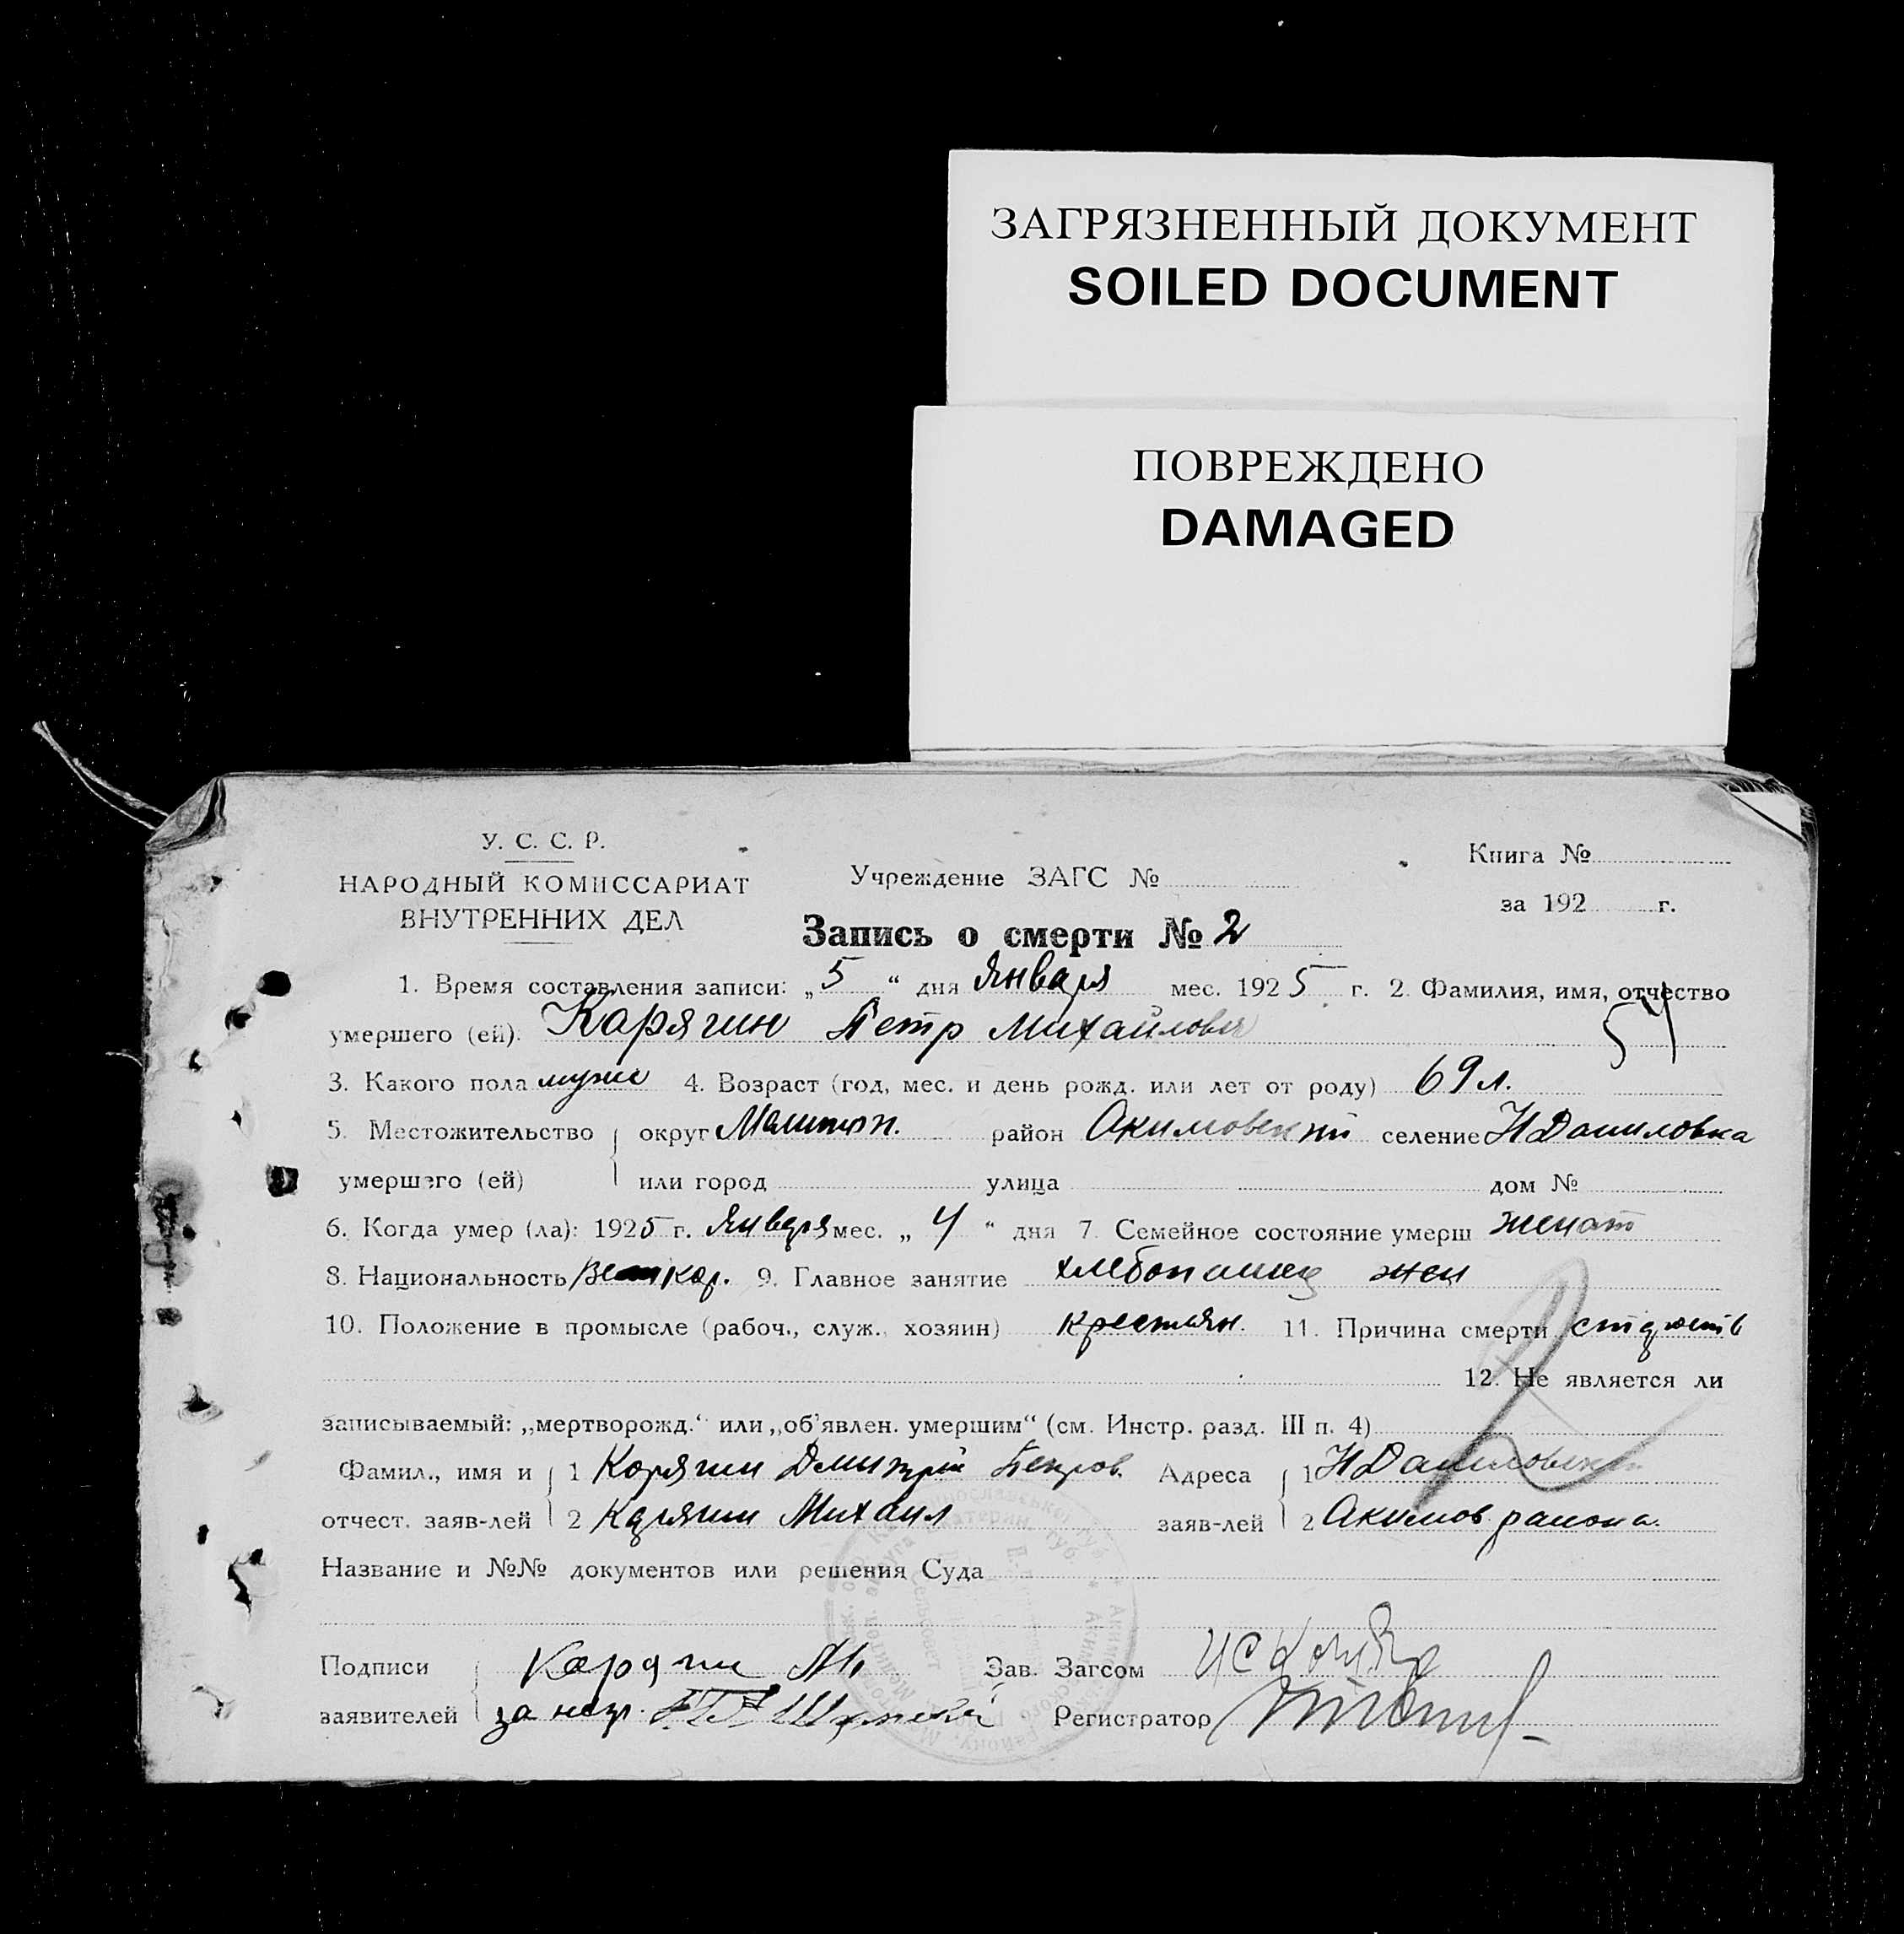 ЗАГРЯЗНЕННЫЙ ДОКУМЕНТ
SOILED DOCUMENT
ПОВРЕЖДЕНО
DAMAGED
У. С. С. Р.
НАРОДНЫЙ КОМИССАРИАТ
ВНУТРЕННИХ ДЕЛ
Учреждение ЗАГС №
Книга №
за 192 г.
Запись о смерти № 2
1. Время составления записи: „5“ дня Января мес. 1925 г. 2. Фамилия, имя, отчество
умершего (ей): Карягин Петр Михайлович
54
3. Какого пола муж 4. Возраст (год, мес. и день рожд. или лет от роду) 69 л.
5. Местожительство округ Мелитоп. район Акимовский селение Н Даниловка
умершего (ей) или город улица дом №
6. Когда умер (ла): 1925 г. Января мес. „4“ дня 7. Семейное состояние умерш женат
8. Национальность Великор. 9. Главное занятие хлебопашец
10. Положение в промысле (рабоч., служ., хозяин) крестьян. 11. Причина смерти старость
12. Не является ли
записываемый: „мертворожд.“ или „об'явлен. умершим“ (см. Инстр. разд. III п. 4)
Фамил., имя и 1 Корягин Дмитрий Петров. Адреса 1 Н Даниловка
отчест. заяв-лей 2 Карягин Михаил заяв-лей 2 Акимов. района.
Название и №№ документов или решения Суда
Подписи Карягин М. Зав. Загсом
заявителей за негр. Регистратор